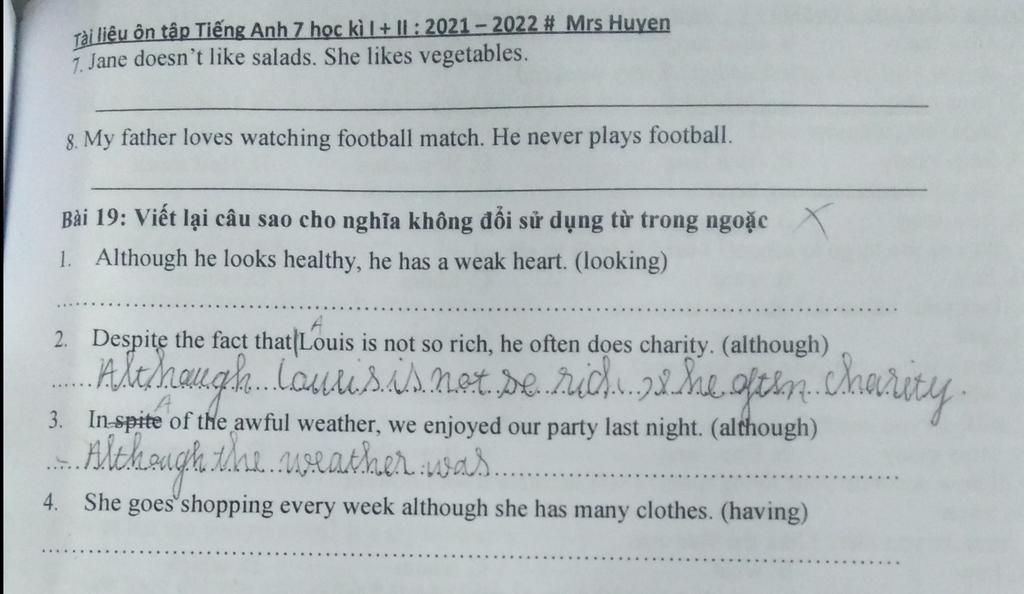 Tài liệu ôn tập Tiếng Anh 7 học kì I + II : 2021 – 2022 # Mrs Huyen
7. Jane doesn't like salads. She likes vegetables.
8. My father loves watching football match. He never plays football.
Bài 19: Viết lại câu sao cho nghĩa không đổi sử dụng từ trong ngoặc X
1. Although he looks healthy, he has a weak heart. (looking)
A
2. Despite the fact that Louis is not so rich, he often does charity. (although)
Although Louis is not so rich, he often charity.
A
3. In spite of the awful weather, we enjoyed our party last night. (although)
- Although the weather was
4. She goes shopping every week although she has many clothes. (having)